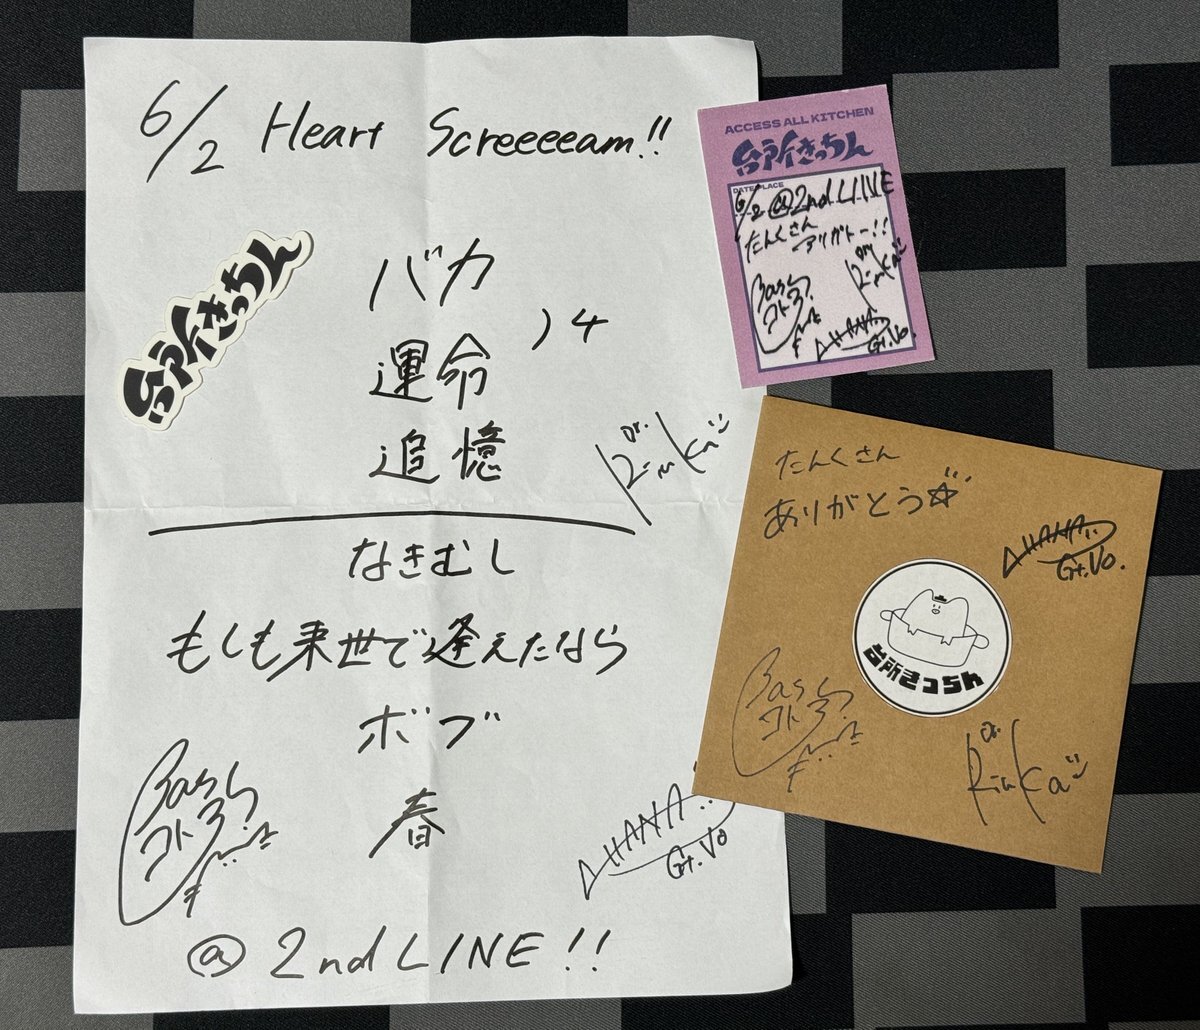 6/2 Heart Screeeeam!!
台所きっちん
バカ
運命
)4
追憶
Dr.
Rinka
なきむし
もしも来世で逢えたなら
ボブ
春
Bass
コトラ
HANA
Gt.Vo
@2nd LINE!!
ACCESS ALL KITCHEN
台所きっちん
DATE/PLACE
6/2 @2nd LINE
たんくさん
アリガトー!!
Dr.
Rinka
Bass
コトラ
HANA
Gt.Vo.
たんくさん
ありがとう☆
HANA
Gt.Vo.
台所きっちん
Bass
コトラ
Dr.
Rinka